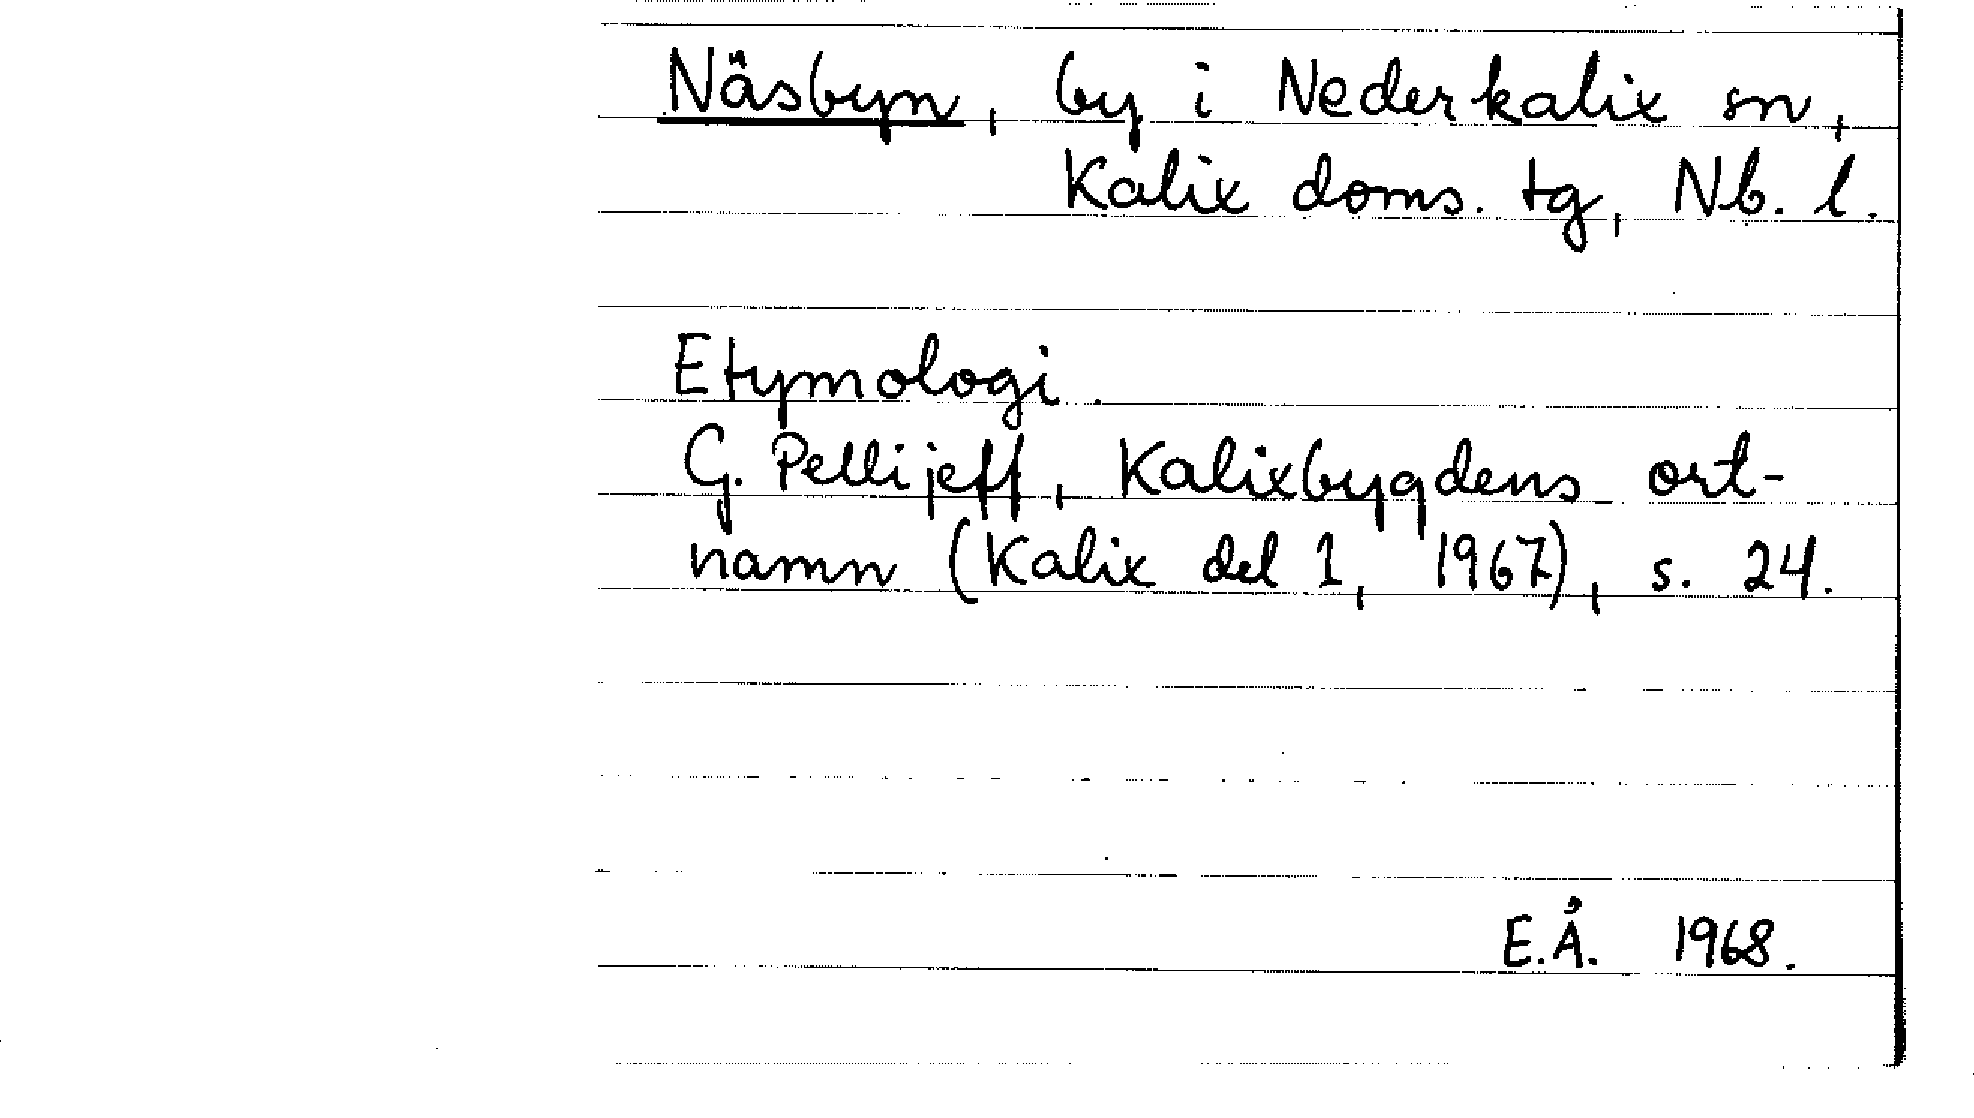 Näsbyn, by i Nederkalix sn,
Kalix doms. tg, Nb. l.
Etymologi.
G. Pellijeff, Kalixbygdens ort-
namn (Kalix del 1, 1967), s. 24.
E.Å. 1968.